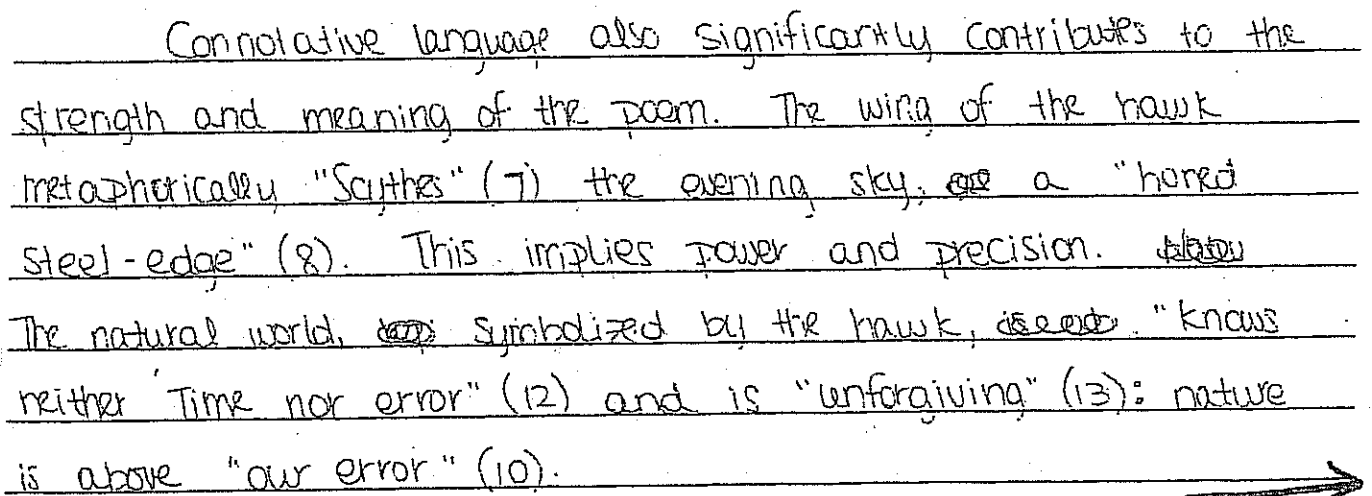 Connotative language also significantly contributes to the
strength and meaning of the poem. The wing of the hawk
metaphorically "Scythes" (7) the evening sky, a "honed
steel-edge" (8). This implies power and precision.
The natural world, symbolized by the hawk, "knows
neither Time nor error" (12) and is "unforgiving" (13): nature
is above "our error" (10).